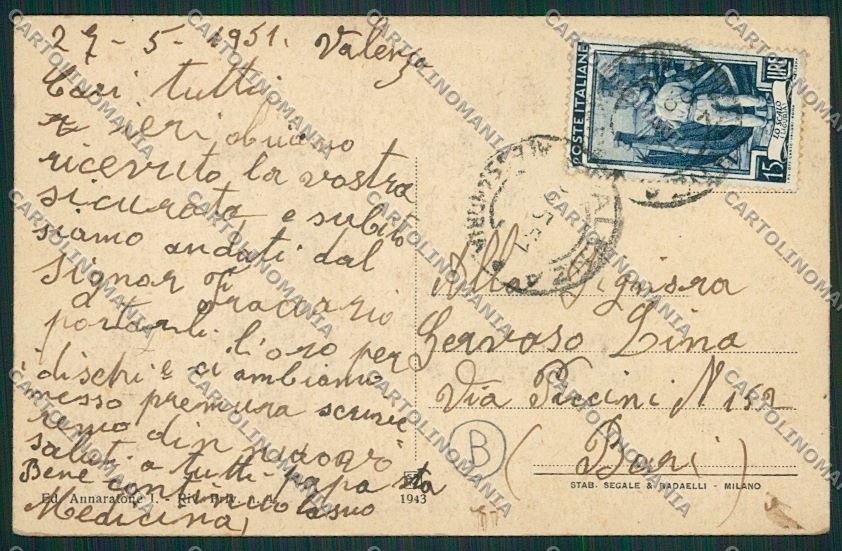 27-5-1951. Valenza
Cari tutti
ieri abiamo
ricevuto la vostra
sicurata, e subito
siamo andati dal
signor
portarli l'oro per
i dischi e ci ambiamo
messo premura scrive
remo di nuovo
saluti a tutti papa sta
Bene contincio la suo
Medicina,
POSTE ITALIANE
LIRE
15
LO SCALO
Alla Signora
Gervaso Lina
Via Piccini N 152
(Bari)
B
Ed. Annaratone I. - Riv.
1943
STAB. SEGALE & BADAELLI - MILANO
CARTOLINOMANIA